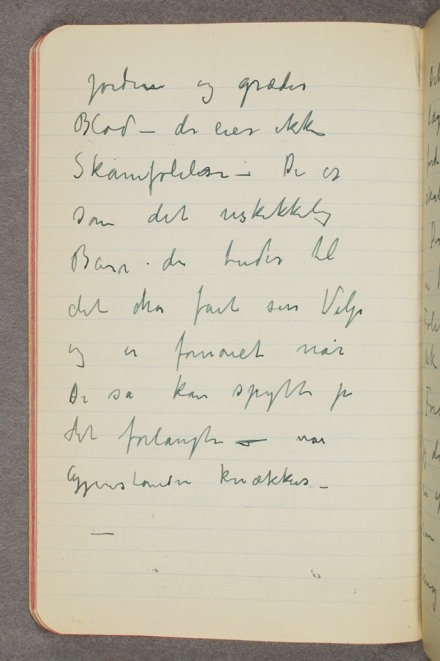 Jorden og græder
Blod – De eier ikke
Skamfølelse – De er
som det uskikkelig
Barn · der
det har faat sin Vilje
og er fornøiet når
De så kan spytte på
det forlangte – når
Gjenstanden knækkes –
—